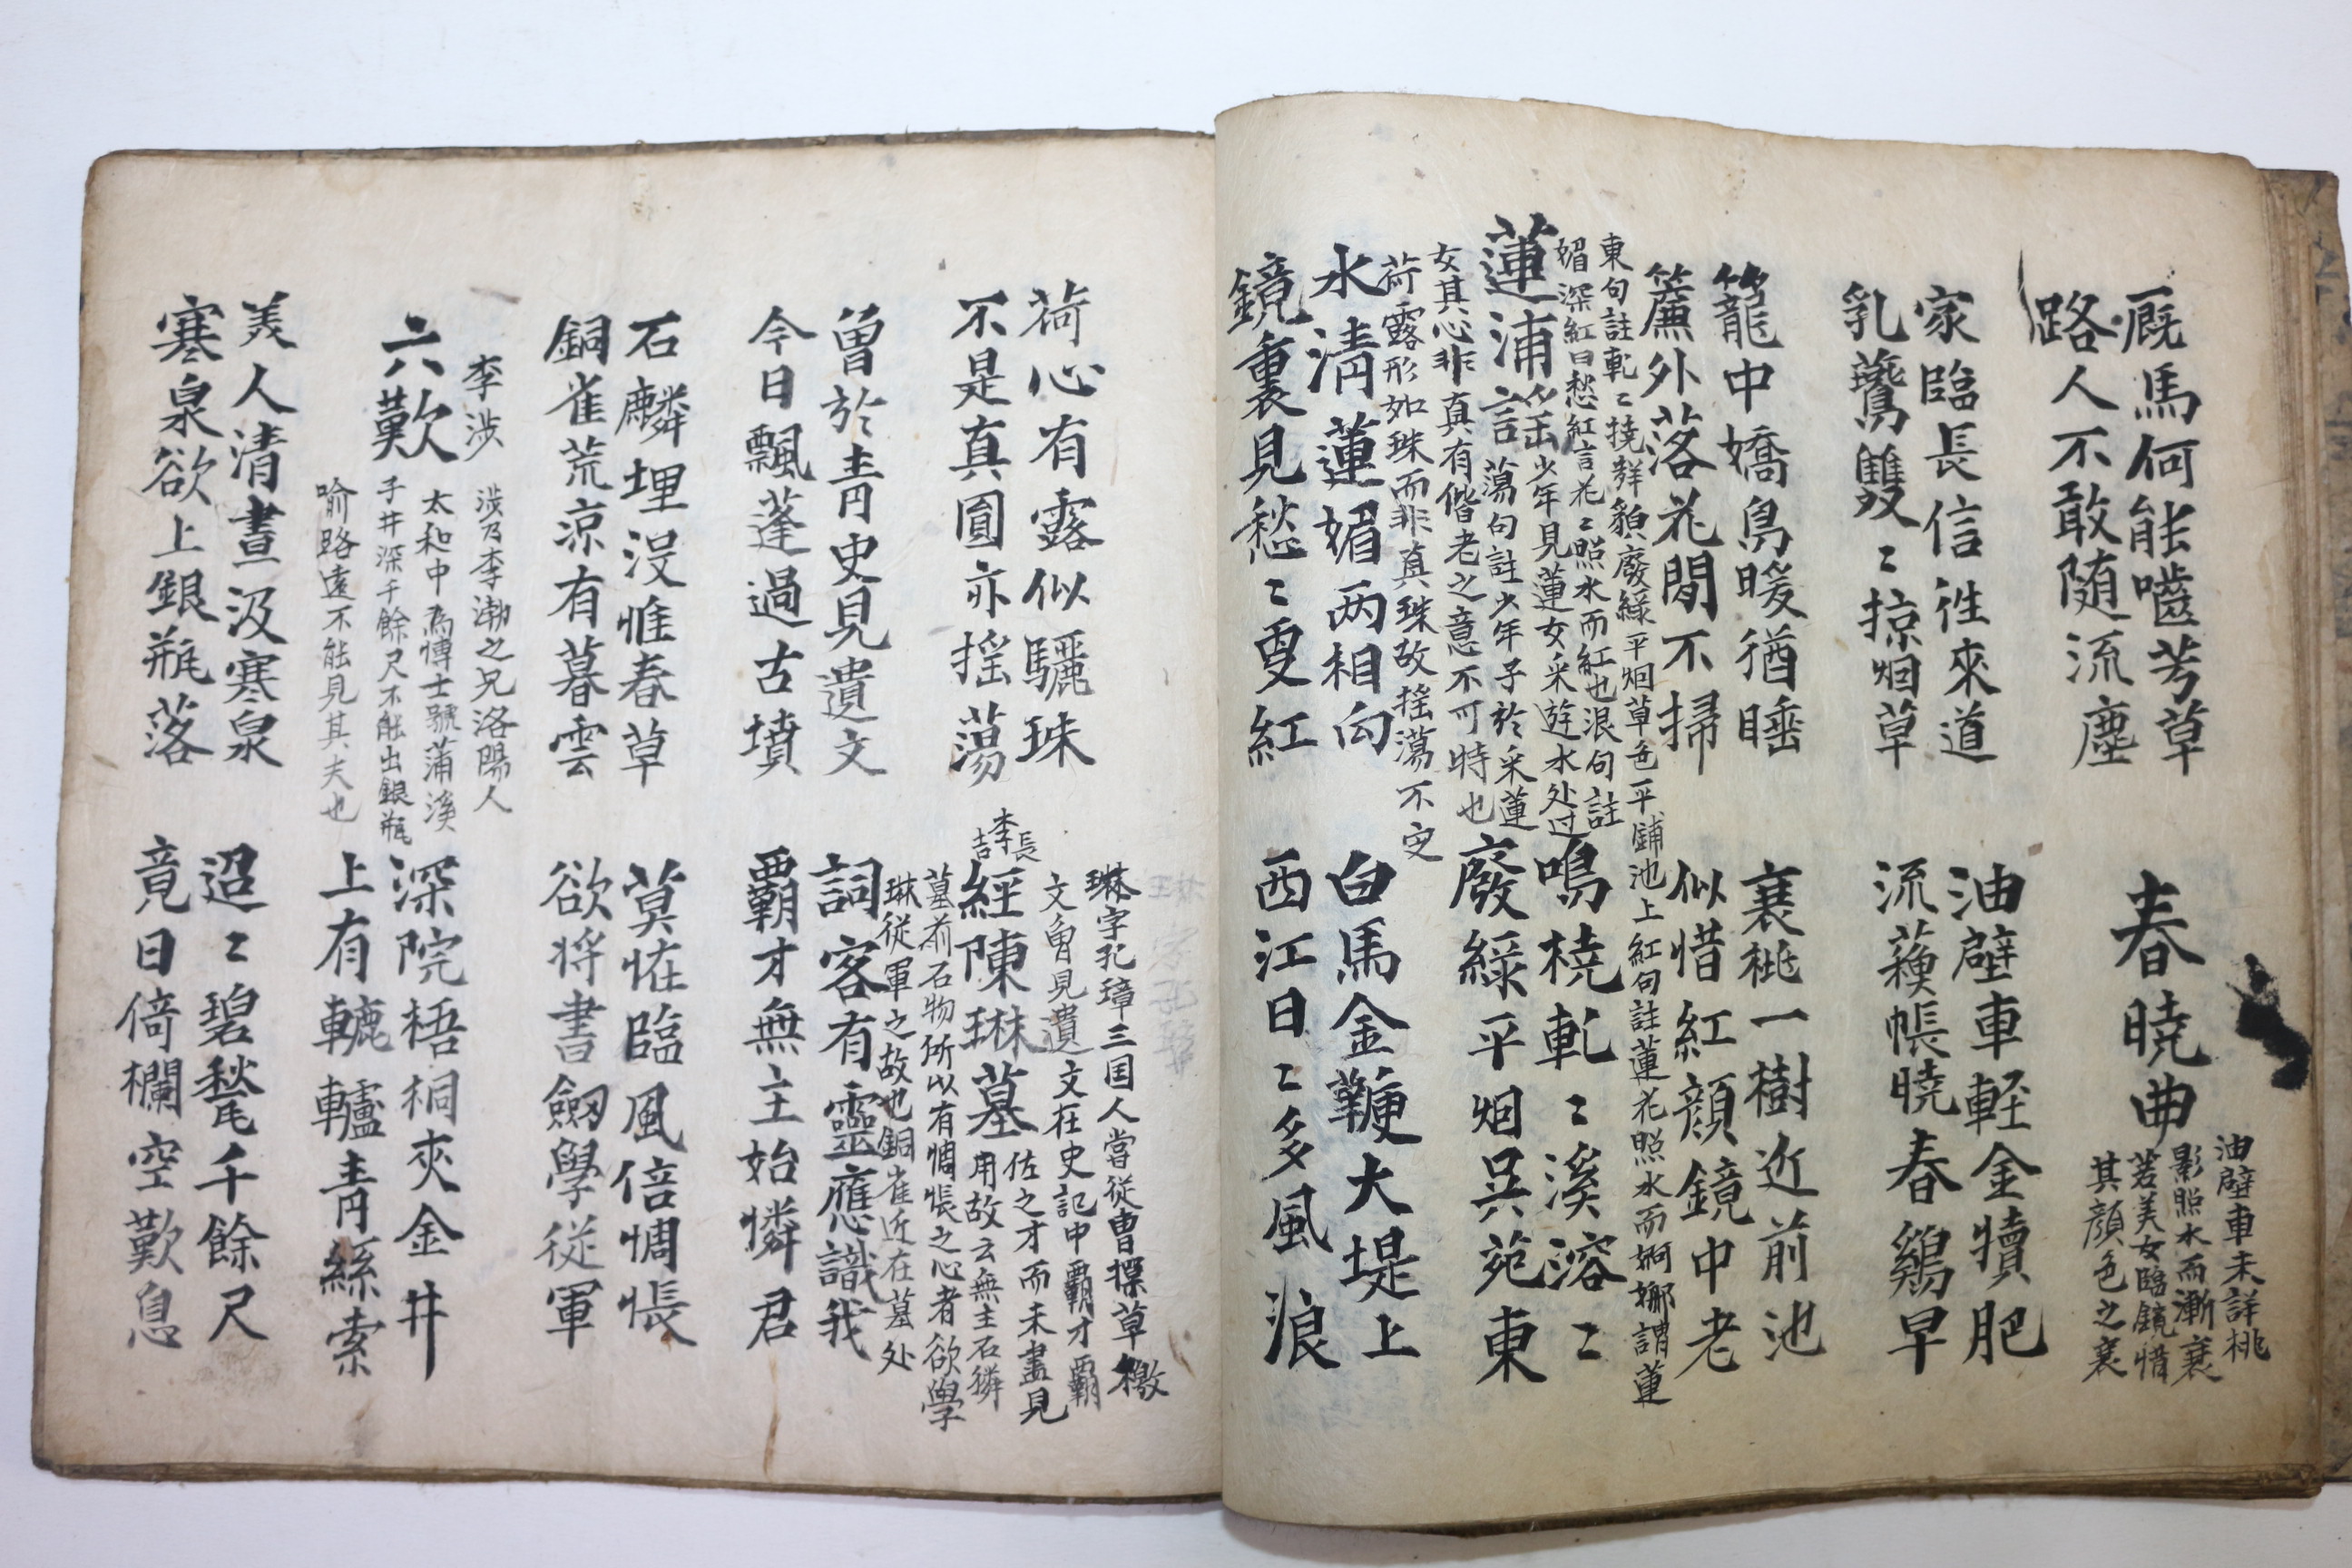 廐馬何能嚙芳草
路人不敢随流塵
春曉曲
油壁車未詳桃
影照水而漸衰
若美女臨鏡惜
其顔色之衰
家臨長信徃來道
乳鷰雙〻掠烟草
油壁車軽金犢肥
流蘓帳曉春鷄早
籠中嬌鳥暖猶睡
簾外落花閒不掃
衰桃一樹近前池
似惜紅顔鏡中老
東句註軋〻撓觧貌廢綠平烟草色平鋪池上紅句註蓮花照水而婀娜謂蓮
媚深紅曰愁紅言花〻照水而紅也浪句註
蓮浦謠
少年見蓮女采逰水处过
蕩句註少年子於采蓮
女其心非真有偕老之意不可時也
荷露形如珠而非真珠故揺蕩不定
鳴橈軋〻溪溶〻
廢綠平烟呉苑東
水清蓮媚两相向
鏡裏見愁〻更紅
白馬金鞭大堤上
西江日〻多風浪
荷心有露似驪珠
不是真圓亦揺蕩
李長吉
經陳琳墓
琳字孔璋三国人嘗從曹操草檄
文曽見遺文在史記中覇才覇
佐之才而未盡見
用故云無主石獜
墓前石物所以有惆悵之心者欲學
琳從軍之故也銅雀近在墓处
曽於青史見遺文
今日飄蓬過古墳
詞客有靈應識我
覇才無主始憐君
石麟埋没惟春草
銅雀荒涼有暮雲
莫恠臨風倍惆悵
欲将書劒學從軍
李涉
六歎
涉乃李渤之兄洛陽人
太和中為博士號蒲溪
子井深千餘尺不能出銀瓶
喻路遠不能見其夫也
深院梧桐夾金井
上有轆轤青絲索
美人清晝汲寒泉
寒泉欲上銀瓶落
迢〻碧甃千餘尺
竟日倚欄空歎息